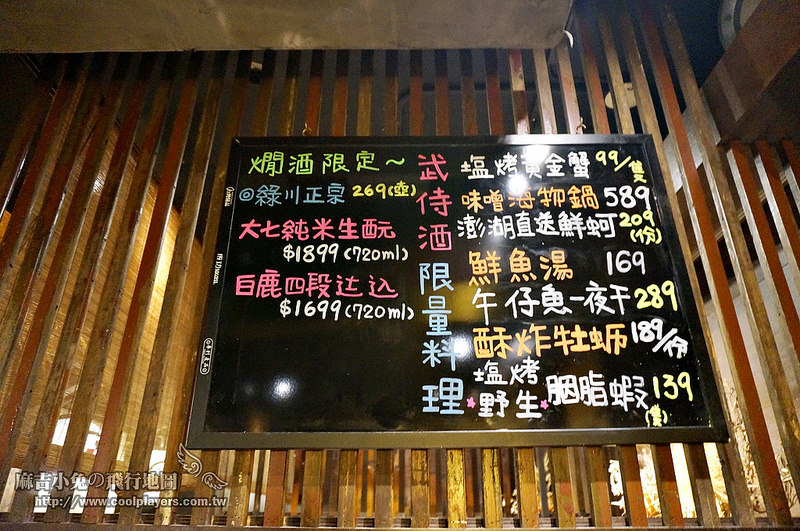 燗酒限定~
@綠川正宗 269(壺)
大七純米生酛
$1899(720ml)
白鹿四段辻込
$1699(720ml)
武侍酒
限量料理
塩烤黃金蟹 99/隻
味噌海物鍋 589
澎湖直送鮮蚵 209(份)
鮮魚湯 169
午仔魚一夜干 289
酥炸牡蠣 189/份
塩烤
野生 胭脂蝦 139(隻)
麻吉小兔の飛行地圖
http://www.coolplayers.com.tw